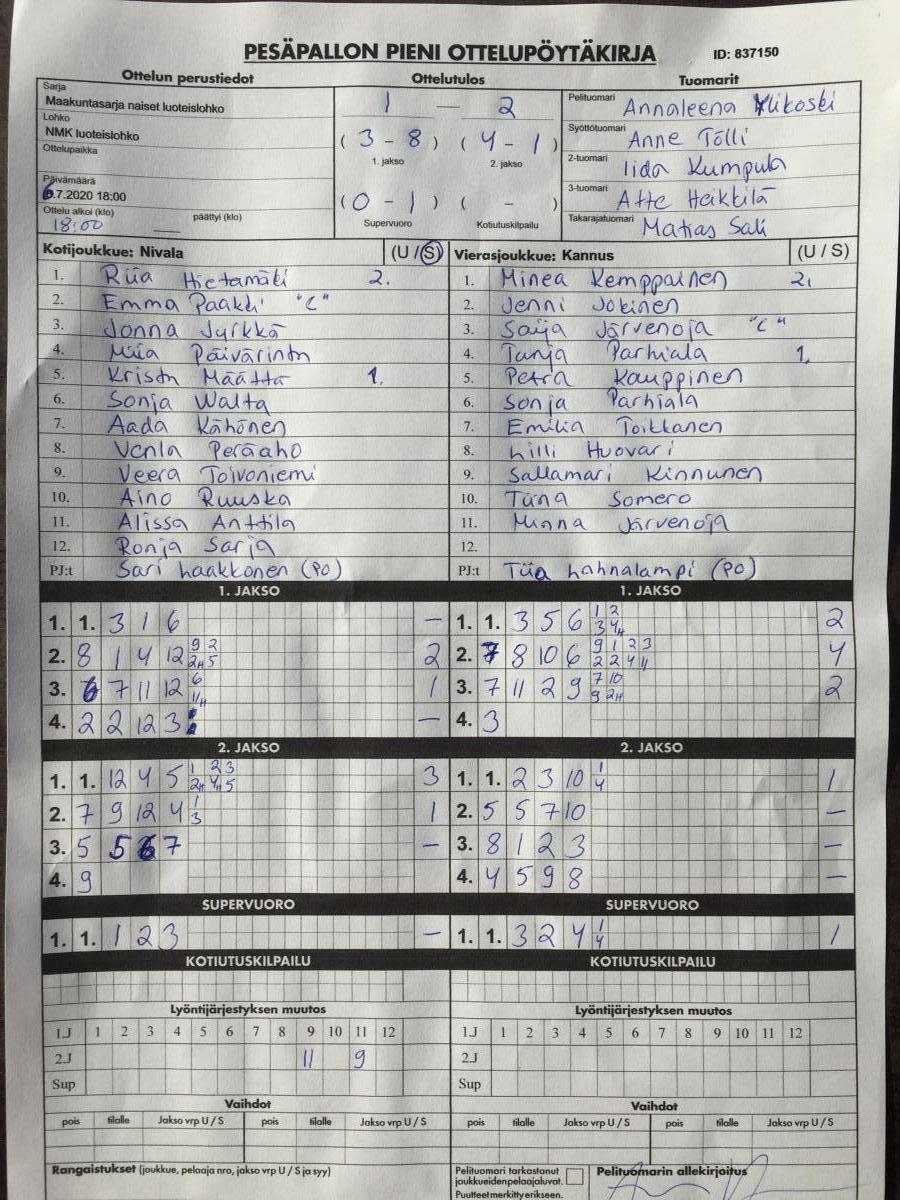 PESÄPALLON PIENI OTTELUPÖYTÄKIRJA ID: 837150
Ottelun perustiedot Ottelutulos Tuomarit
Sarja
Maakuntasarja naiset luoteislohko
Lohko
NMK luoteislohko
Ottelupaikka
Päivämäärä
6.7.2020 18:00
Ottelu alkoi (klo) päättyi (klo)
18:00
1 — 2
( 3 - 8 ) ( 4 - 1 )
1. jakso 2. jakso
( 0 - 1 ) ( - )
Supervuoro Kotiutuskilpailu
Pelituomari Annaleena Ylikoski
Syöttötuomari Anne Tölli
2-tuomari Iida Kumpula
3-tuomari Atte Heikkilä
Takarajatuomari Matias Sali
Kotijoukkue: Nivala (U / S)
1. Riia Hietamäki 2.
2. Emma Paakki "C"
3. Jonna Jyrkkä
4. Miia Päivärinta
5. Krista Määttä 1.
6. Sonja Walta
7. Aada Kähönen
8. Venla Peräaho
9. Veera Toivoniemi
10. Aino Ruuska
11. Alissa Anttila
12. Ronja Sarja
PJ:t Sari Laakkonen (PO)
Vierasjoukkue: Kannus (U / S)
1. Minea Kemppainen 2.
2. Jenni Jokinen
3. Saija Järvenoja "C"
4. Tanja Parhiala 1.
5. Petra Kauppinen
6. Sonja Parhiala
7. Emilia Toikkanen
8. Lilli Huovari
9. Sallamari Kinnunen
10. Tiina Somero
11. Minna Järvenoja
12.
PJ:t Tiia Lahnalampi (PO)
1. JAKSO
1. 1. 3 1 6 —
2. 8 1 4 12 9 2 2H 5 2
3. 6 7 11 12 6 11H 1
4. 2 2 12 3 —
1. JAKSO
1. 1. 3 5 6 1 2 3 4H 2
2. 7 8 10 6 9 1 2 3 2 2 4 11 4
3. 7 11 2 9 7 10 9 2H 2
4. 3
2. JAKSO
1. 1. 12 4 5 1 2 3 2H 4H 5 3
2. 7 9 12 4 1 3 1
3. 5 5 6 7 —
4. 9
2. JAKSO
1. 1. 2 3 10 1 4 1
2. 5 5 7 10 —
3. 8 1 2 3 —
4. 4 5 9 8 —
SUPERVUORO
1. 1. 1 2 3 —
SUPERVUORO
1. 1. 3 2 4 1 4 1
KOTIUTUSKILPAILU KOTIUTUSKILPAILU
Lyöntijärjestyksen muutos
1.J 1 2 3 4 5 6 7 8 9 10 11 12
2.J 11 9
Sup
Lyöntijärjestyksen muutos
1.J 1 2 3 4 5 6 7 8 9 10 11 12
2.J
Sup
Vaihdot Vaihdot
pois tilalle Jakso vrp U / S pois tilalle Jakso vrp U / S pois tilalle Jakso vrp U / S pois tilalle Jakso vrp U / S
Rangaistukset (joukkue, pelaaja nro, jakso vrp U / S ja syy)
Pelituomari tarkastanut
joukkueiden pelaajaluvat.
Puutteet merkitty erikseen.
Pelituomarin allekirjoitus